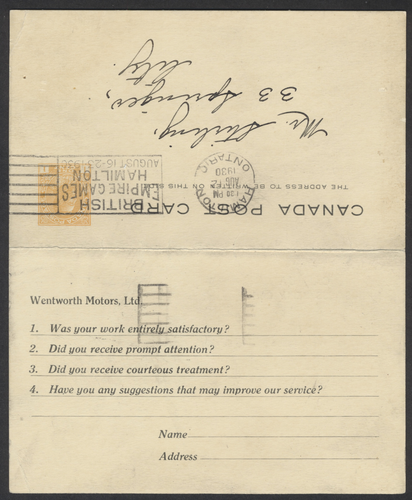 CANADA POST CARD
THE ADDRESS TO BE WRITTEN ON THIS SIDE
HAMILTON
PM
AUG 12
1930
ONTARIO
BRITISH
EMPIRE GAMES
HAMILTON
AUGUST 16-23-1930
Mr. Stirling,
33 Springer,
City.
Wentworth Motors, Ltd.
1. Was your work entirely satisfactory?
2. Did you receive prompt attention?
3. Did you receive courteous treatment?
4. Have you any suggestions that may improve our service?
Name
Address